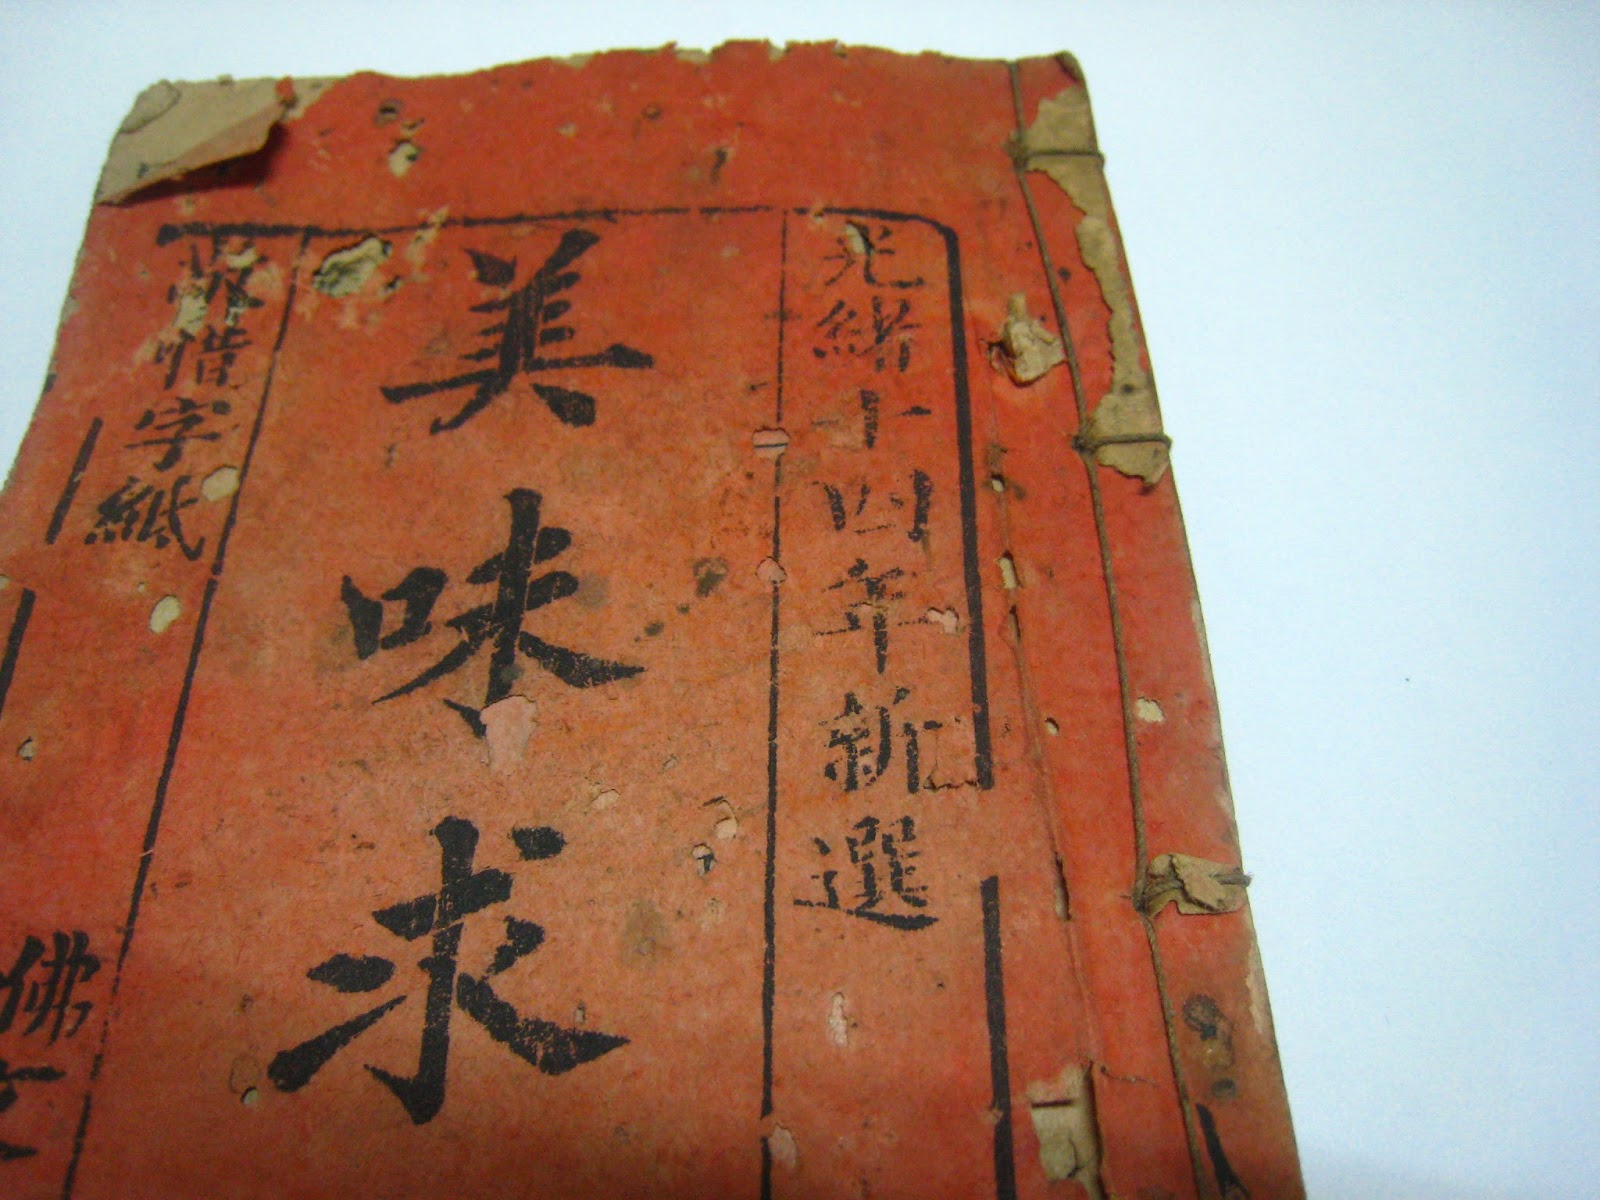 光緒十四年新選
美味求
敬惜字紙
佛